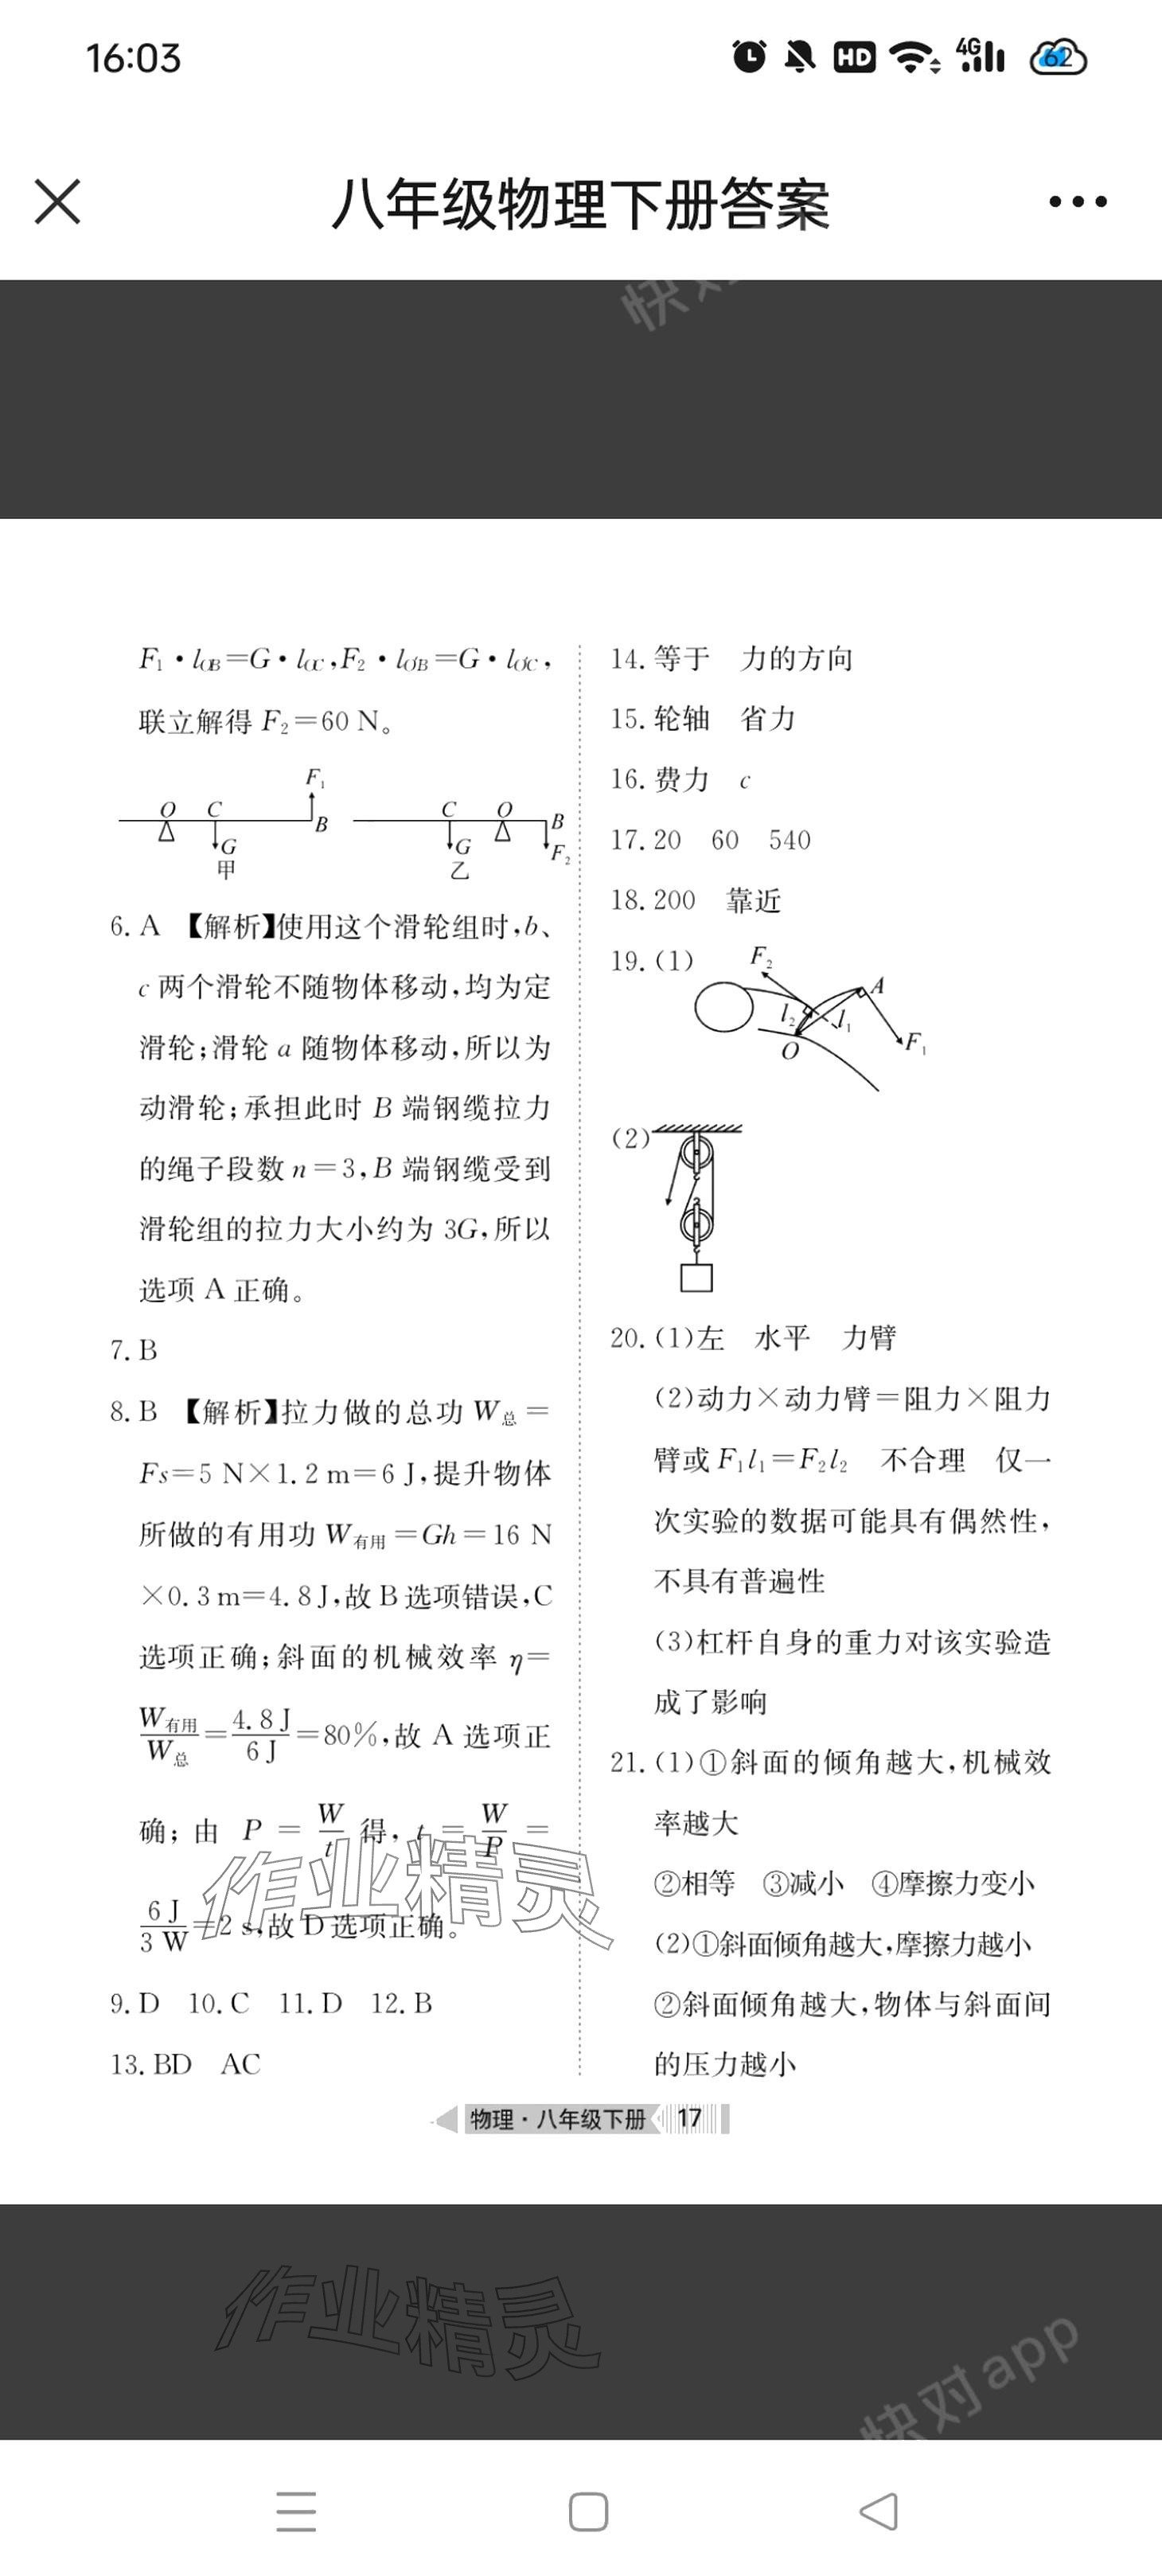 16:03
HD 4G 62
八年级物理下册答案
快对
F₁·l_OB=G·l_OC,F₂·l_O′B=G·l_O′C,
联立解得 F₂=60 N。
F₁
O C B
G
甲
C O B
G F₂
乙
6. A 【解析】使用这个滑轮组时,b、
c 两个滑轮不随物体移动,均为定
滑轮;滑轮 a 随物体移动,所以为
动滑轮;承担此时 B 端钢缆拉力
的绳子段数 n=3,B 端钢缆受到
滑轮组的拉力大小约为 3G,所以
选项 A 正确。
7. B
8. B 【解析】拉力做的总功 W总=
Fs=5 N×1.2 m=6 J,提升物体
所做的有用功 W有用=Gh=16 N
×0.3 m=4.8 J,故 B 选项错误,C
选项正确;斜面的机械效率 η=
W有用/W总=4.8 J/6 J=80%,故 A 选项正
确;由 P=W/t 得,t=W/P=
6 J/3 W=2 s,故 D 选项正确。
9. D 10. C 11. D 12. B
13. BD AC
14. 等于 力的方向
15. 轮轴 省力
16. 费力 c
17. 20 60 540
18. 200 靠近
19. (1) F₂ A l₂ l₁ O F₁
(2)
20. (1)左 水平 力臂
(2)动力×动力臂=阻力×阻力
臂或 F₁l₁=F₂l₂ 不合理 仅一
次实验的数据可能具有偶然性,
不具有普遍性
(3)杠杆自身的重力对该实验造
成了影响
21. (1)①斜面的倾角越大,机械效
率越大
②相等 ③减小 ④摩擦力变小
(2)①斜面倾角越大,摩擦力越小
②斜面倾角越大,物体与斜面间
的压力越小
作业精灵
物理·八年级下册 17
作业精灵
快对app